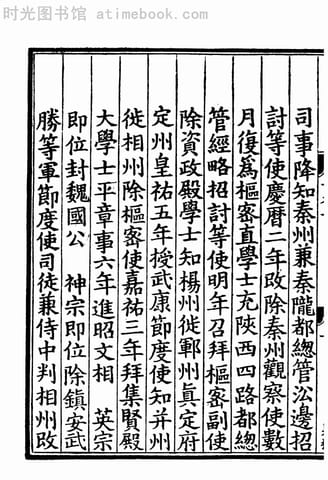 时光图书馆 atimebook.com
司事降知秦州兼秦隴都總管沿邊招
討等使慶曆二年改除秦州觀察使數
月復爲樞密直學士充陝西四路都總
管經略招討等使明年召拜樞密副使
除資政殿學士知楊州徙鄆州真定府
定州皇祐五年授武康節度使知并州
徙相州除樞密使嘉祐三年拜集賢殿
大學士平章事六年進昭文相 英宗
即位封魏國公 神宗即位除鎮安武
勝等軍節度使司徒兼侍中判相州改